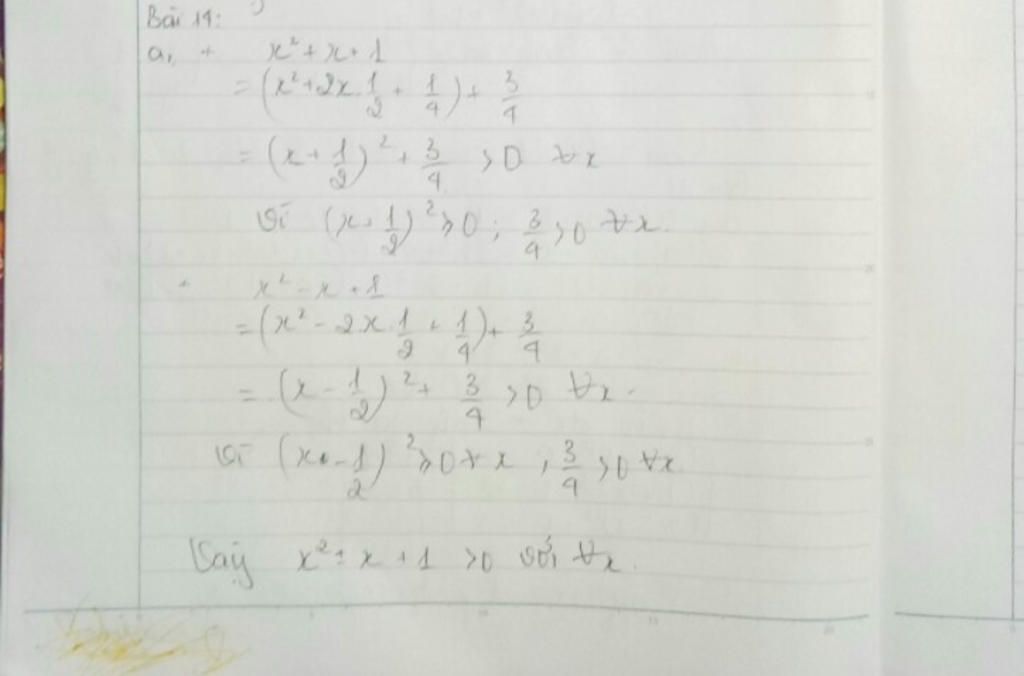 Bài 14:
a, + x² + x + 1
= (x² + 2x.1/2 + 1/4) + 3/4
= (x + 1/2)² + 3/4 > 0 ∀x
Vì (x + 1/2)² ≥ 0 ; 3/4 > 0 ∀x.
x² - x + 1
= (x² - 2x.1/2 + 1/4) + 3/4
= (x - 1/2)² + 3/4 > 0 ∀x.
Vì (x - 1/2)² ≥ 0 ∀x , 3/4 > 0 ∀x
Vậy x² ± x + 1 > 0 với ∀x.